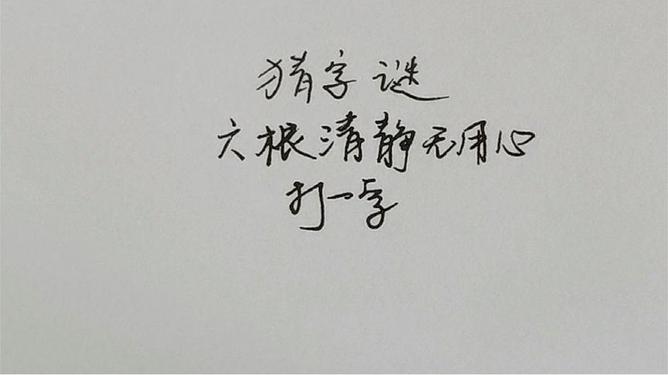 猜字谜
六根清静无用心
打一字